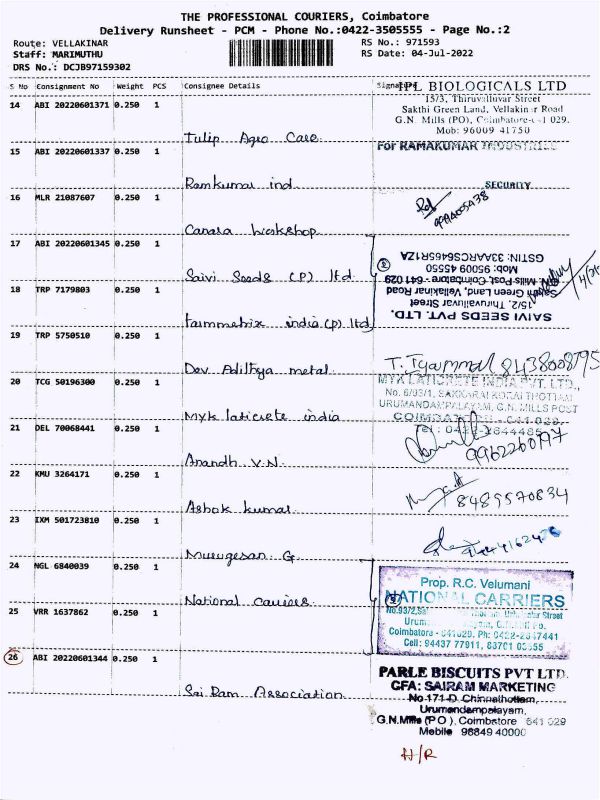 THE PROFESSIONAL COURIERS, Coimbatore
Delivery Runsheet - PCM - Phone No.:0422-3505555 - Page No.:2
Route: VELLAKINAR
Staff: MARIMUTHU
DRS No.: DCJB97159302
RS No.: 971593
RS Date: 04-Jul-2022
S No Consignment No Weight PCS Consignee Details Signature
14 ABI 20220601371 0.250 1
Tulip Agro Care
IPL BIOLOGICALS LTD
15/3, Thiruvalluvar Street
Sakthi Green Land, Vellakinar Road
G.N. Mills (PO), Coimbatore-641 029.
Mob: 96009 41750
15 ABI 20220601337 0.250 1
Ramkumar ind
For RAMAKUMAR INDUSTRIES
SECURITY
16 MLR 21087607 0.250 1
Canara Workshop
17 ABI 20220601345 0.250 1
Saivi Seeds (P) ltd
SAIVI SEEDS PVT. LTD.
15/2, Thiruvalluvar Street
Sakthi Green Land, Vellakinar Road
G.N. Mills Post, Coimbatore - 641 029
Mob: 95009 45550
GSTIN: 33AARCS6465R1ZA
2
18 TRP 7179803 0.250 1
tammetrix india (p) ltd
19 TRP 5750510 0.250 1
Dev Adithya metal
8438008795
20 TCG 50196300 0.250 1
Myk laticrete india
MYK LATICRETE INDIA PVT. LTD.,
No. 6/93/1, SAKKARAI KOTAI THOTTAM
URUMANDAMPALAYAM, G.N. MILLS POST
COIMBATORE - 641 029.
21 DEL 70068441 0.250 1
Anandh V.N.
9962260197
22 KMU 3264171 0.250 1
Ashok kumar
8489570834
23 IXM 501723810 0.250 1
Murugesan G.
24 NGL 6840039 0.250 1
National Carriers
25 VRR 1637862 0.250 1
Prop. R.C. Velumani
NATIONAL CARRIERS
Coimbatore - 641029. Ph: 0422-2647441
Cell: 94437 77911,
26 ABI 20220601344 0.250 1
Sai Ram Association
PARLE BISCUITS PVT LTD.
CFA: SAIRAM MARKETING
No 171-D, Chinnathottam,
Urumandampalayam,
G.N.Mills (P.O), Coimbatore 641 029
Mobile 98849 40000
H/R